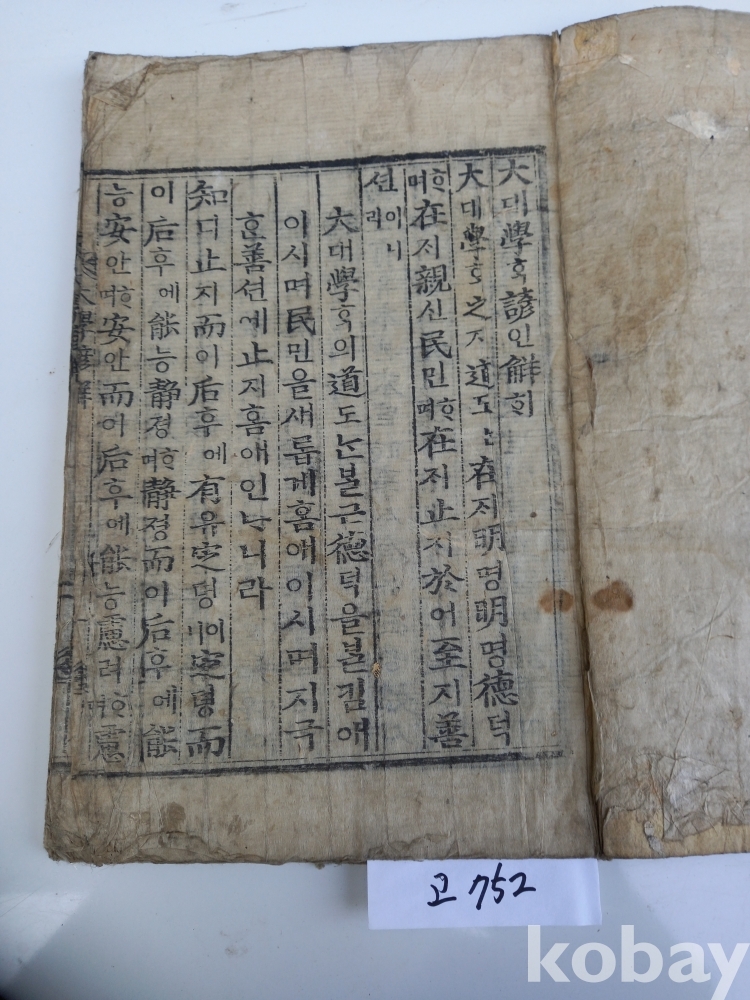 大대學ᄒᆞᆨ諺언解ᄒᆡ
大대學ᄒᆞᆨ之지道도ᄂᆞᆫ在ᄌᆡ明명明명德덕
ᄒᆞ며在ᄌᆡ親신民민ᄒᆞ며在ᄌᆡ止지於어至지善
션이니라
大대學ᄒᆞᆨ의道도ᄂᆞᆫᄇᆞᆯ근德덕을ᄇᆞᆯ김애
이시며民민을새롭게홈애이시며지극
ᄒᆞᆫ善션에止지홈애인ᄂᆞ니라
知디止지而이后후에有유定뎡이니定뎡而
이后후에能능靜졍ᄒᆞ며靜졍而이后후에能
능安안ᄒᆞ며安안而이后후에能능慮려ᄒᆞ며慮
大學諺解
고 752
kobay